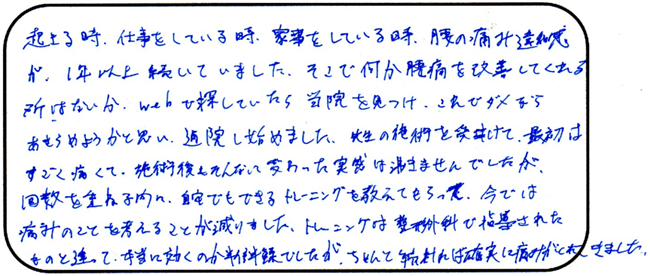 起きる時、仕事をしている時、家事をしている時、腰の痛み違和感
が、1年以上続いていました。そこで何か腰痛を改善してくれる
所はないか、webで探していたら当院を見つけ、これでダメなら
あきらめようかと思い、通院し始めました。先生の施術を受けて、最初は
すごく痛くて、施術後もそんなに変わった実感は湧きませんでしたが、
回数を重ねる内に、自宅でもできるトレーニングを教えてもらって、今では
痛みのことを考えることが減りました。トレーニングは整形外科で指導された
ものと違って、本当に効くのか半信半疑でしたが、ちゃんと続ければ確実に痛みがとれてきました。